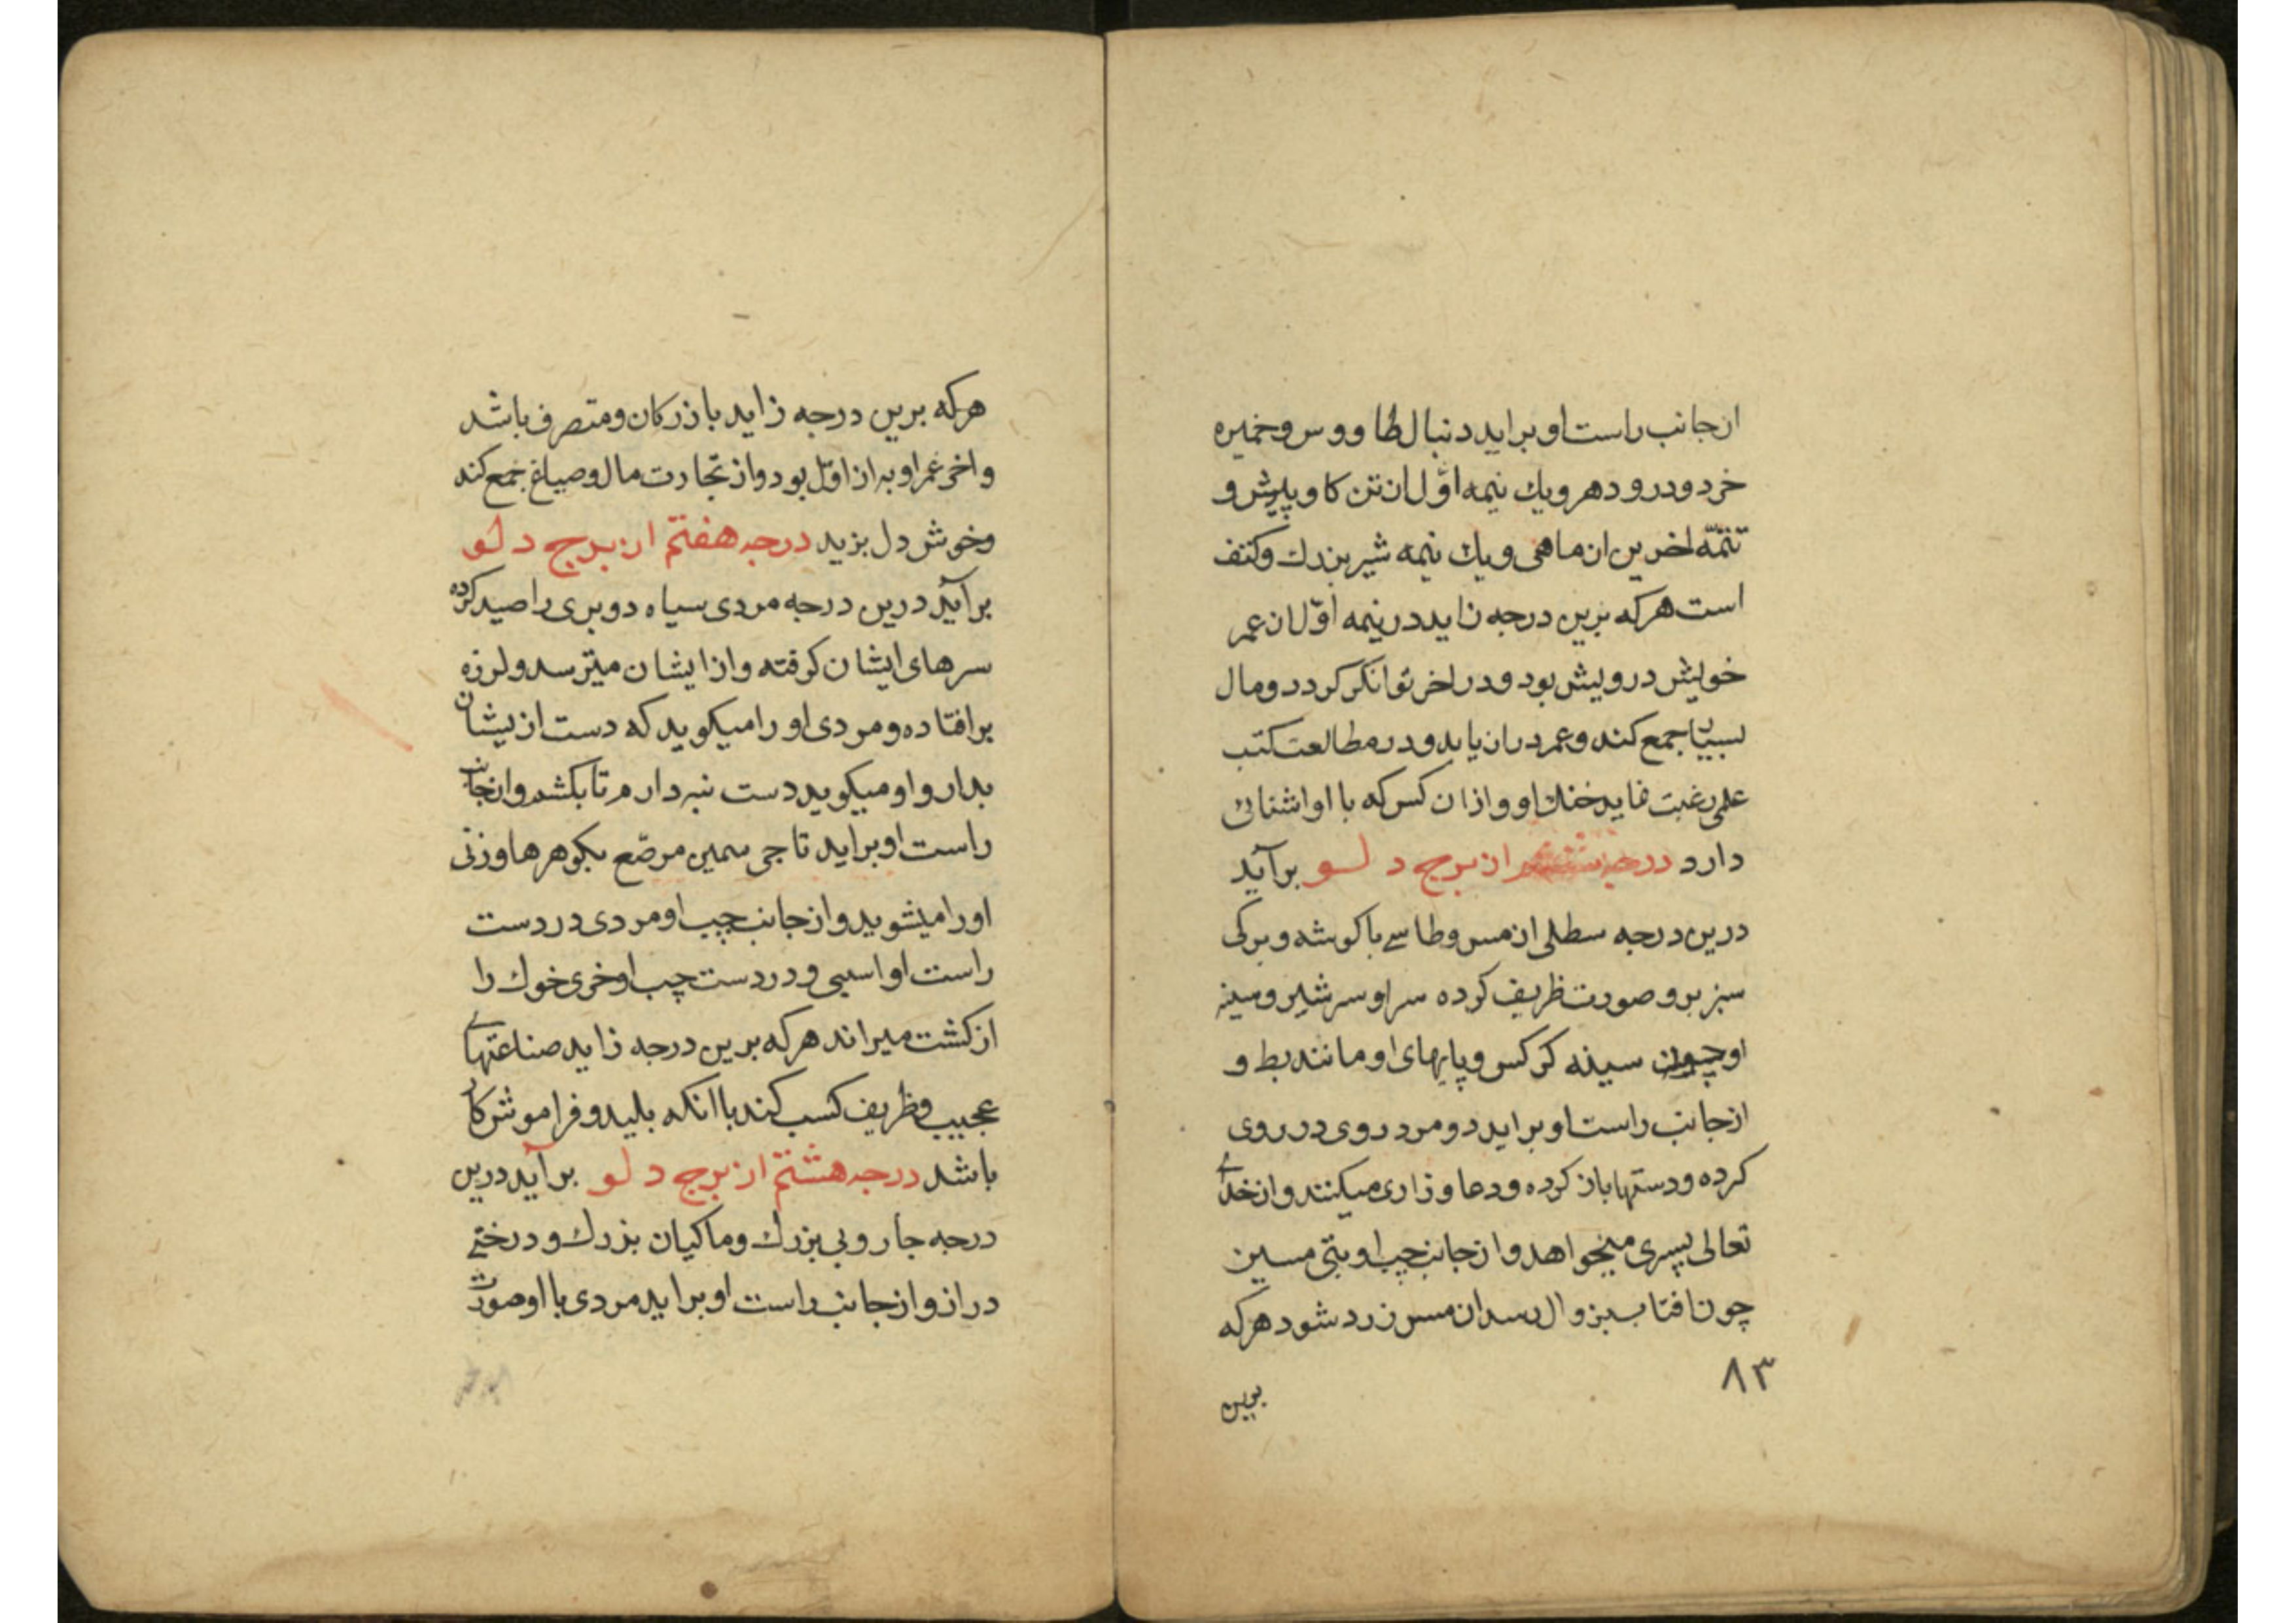 ازجانب راست او براید دنبال طاووس و خمیره
خرد و درود هر و یك نیمه اوّل ان تن کاو پیش و
تتمّه اخرین ان ماهی و یك نیمه شیر بزرك و کتف
است هرکه برین درجه زاید در نیمه اوّل ان عمر
خویش درویش بود و در اخر توانکر کردد و مال
بسیار جمع کند و عمر دراز یابد و در مطالعت کتب
علمی رغبت نماید خنك او و ازان کس که با او اشنائی
دارد درجه ششم از برج دلو برآید
درین درجه سطلی از مس و طاسے با کوشه و برکی
سبز برو صورت ظریف کرده سر او سر شیر و سینه
او چون سینه کرکس و پایهای او مانند بط و
ازجانب راست او براید دو مرد روی در روی
کرده و دستها باز کرده و دعا و زاری میکنند و از خدای
تعالی پسری میخواهد و از جانب چپ او بتی مسین
چون افتاب بزوال رسد ان مس زرد شود هرکه
۸۳
برین
هرکه برین درجه زاید بازرکان و متصرف باشد
و اخر عمر او به از اوّل بود و از تجارت مال و ضیاع جمع کند
و خوش دل بزید درجه هفتم از برج دلو
برآید درین درجه مردی سیاه دو بری را صید کرده
سرهای ایشان کرفته و از ایشان میترسد و لرزه
برافتاده و مردی او را میکوید که دست از یشان
بدار و او میکوید دست نبردارم تا بکشم و از جانب
راست او براید تاجی سمین مرصّع بکوهرها و زنی
اورا میشوید و ازجانب چپ او مردی در دست
راست او اسبی و در دست چپ او خری خوك را
از کشت میراند هرکه برین درجه زاید صناعتهای
عجیب و ظریف کسب کند با انکه بلید و فراموش کار
باشد درجه هشتم از برج دلو برآید درین
درجه جاروبی بزرك و ماکیان بزرك و درختے
دراز و ازجانب راست او براید مردی با او صورت